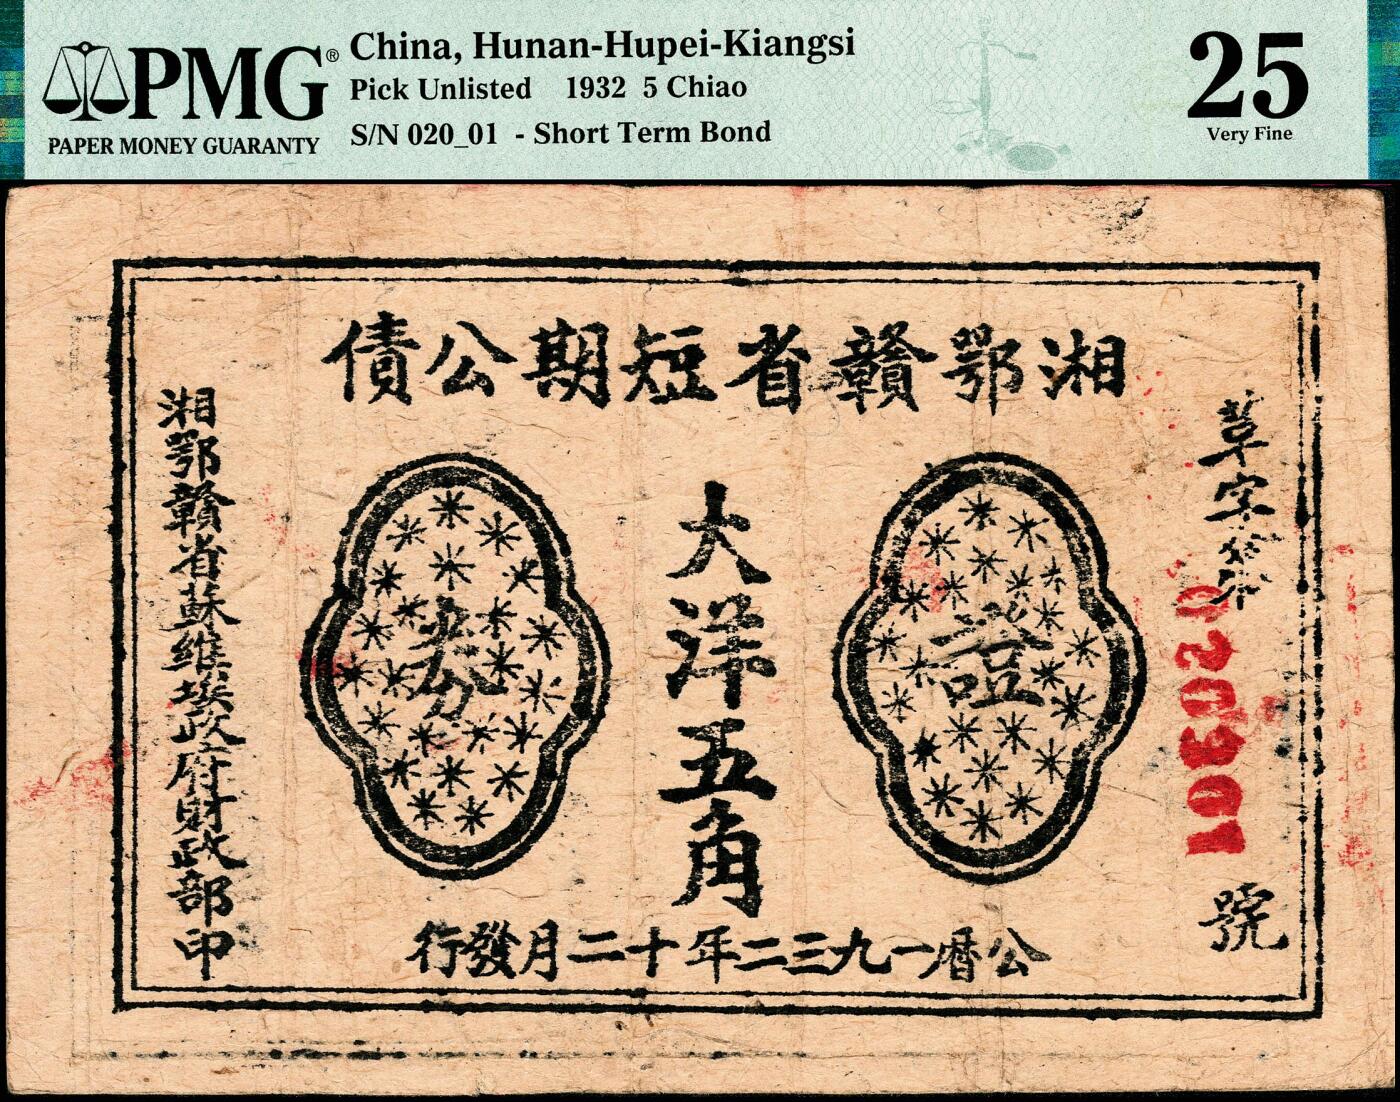 PMG®
PAPER MONEY GUARANTY
China, Hunan-Hupei-Kiangsi
Pick Unlisted 1932 5 Chiao
S/N 020_01 - Short Term Bond
25
Very Fine
湘鄂贛省短期公債
字
020301
號
證
大洋五角
券
湘鄂贛省蘇維埃政府財政部印
公曆一九三二年十二月發行